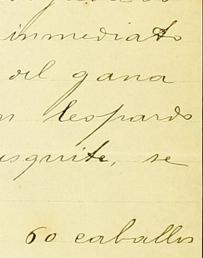 inmediato
del gana
leopardo
squite, se
60 caballos